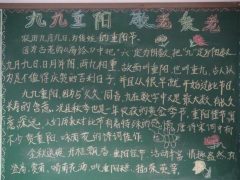 九九重阳 敬老爱老
农历九月九日,为传统的重阳节。
因为古老的《易经》中把“六”定为阴数,把“九”定为阳数,
九月九日,日月并阳,两九相重,故而叫重阳,也叫重九,古人认
为是个值得庆贺的吉利日子,并且从很早就开始过此节日。
九九重阳,因为与“久久”同音,九在数字中又是最大数,有长久
长寿的含意,况且秋季也是一年收获的黄金季节,重阳佳节,寓
意深远,人们对此节历来有着特殊的感情,唐诗宋词中有
不少贺重阳,咏菊花的诗词佳作。
金秋送爽,丹桂飘香,重阳佳节,活动丰富,情趣盎然,有
登高、赏菊、喝菊花酒、吃重阳糕、插茱萸等。